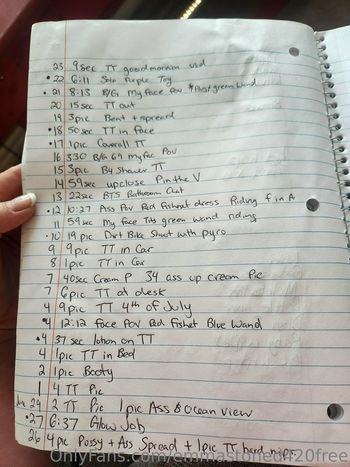 23 9sec TT goodmornin vid
• 22 6:11 Solo Purple Toy
• 21 8:13 B/G My face Pov & Pos green Wand
20 15sec TT out
19 3pic Bent + spread
• 18 50sec TT in face
• 17 1pic Coverall TT
16 3:30 B/G 69 my fac Pov
15 3pic B4 Shower TT
14 59sec upclose Pin the V
13 22sec BTS Bathroom Chat
• 12 10:27 Ass Pov Red Fishnet dress Riding f in A
11 59sec my face Tits green wand riding
• 10 19pic Dirt Bike Shoot with pyro
9 9pic TT in Car
8 1pic TT in Car
7 40sec Cream P 34 ass up cream Pic
7 6pic TT at desk
4 9pic TT 4th of July
• 4 12:12 face Pov Red Fishnet Blue Wand
• 4 37sec lotion on TT
4 1pic TT in Bed
2 1pic Booty
1 4 TT Pic
29 2 TT Pic 1pic Ass & Ocean View
• 27 6:37 Blow Job
26 4pic Pussy + Ass Spread + 1pic TT hard nips